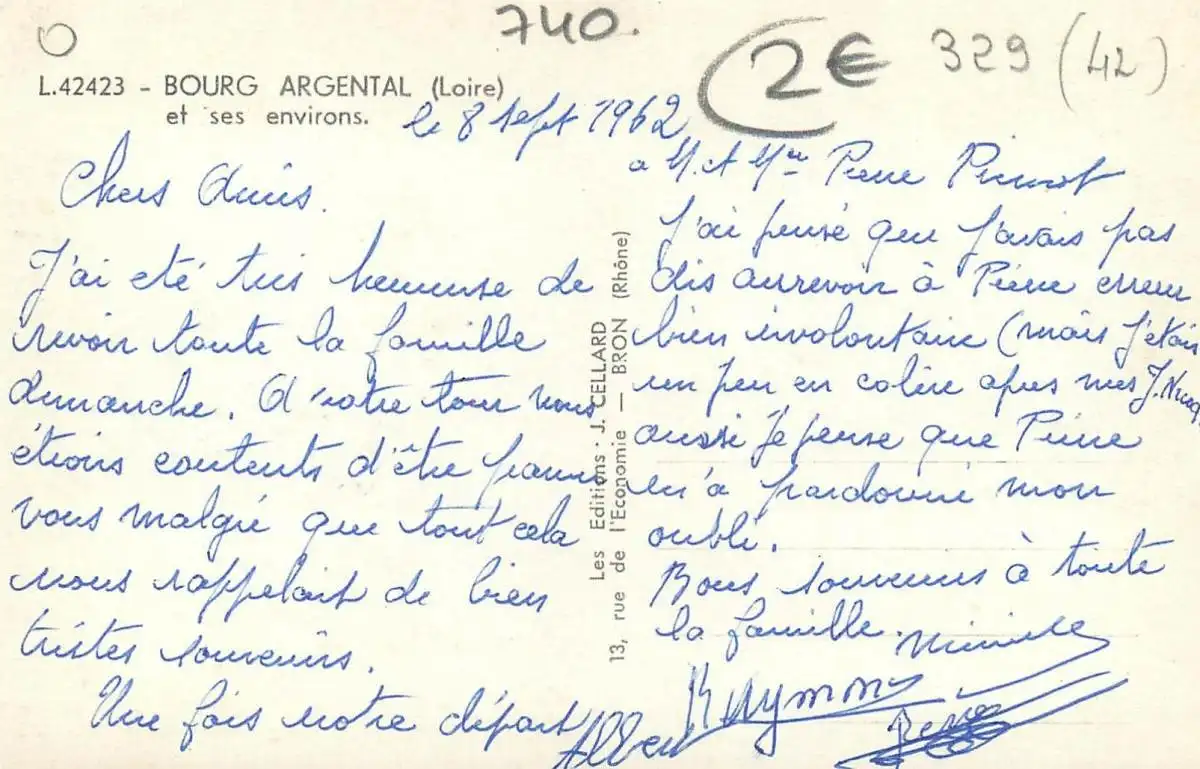 740.
2€ 329 (42)
L.42423 - BOURG ARGENTAL (Loire)
et ses environs.
le 8 sept 1962
Chers Amis.
J'ai eté très heureuse de
revoir toute la famille
dimanche. A notre tour nous
étions contents d'être parmi
vous malgré que tout cela
nous rappelait de bien
tristes souvenirs.
Une fois notre départ
Les Editions · J. CELLARD
13, rue de l'Economie — BRON (Rhône)
a M. et Mme Pierre
J'ai pensé que J'avais pas
dis aurevoir à Pierre erreur
bien involontaire (mais J'étais
un peu en colère après mes
aussi Je pense que Pierre
m'a pardonné mon
oubli.
Bons souvenirs à toute
la famille.
Raymond
Albert